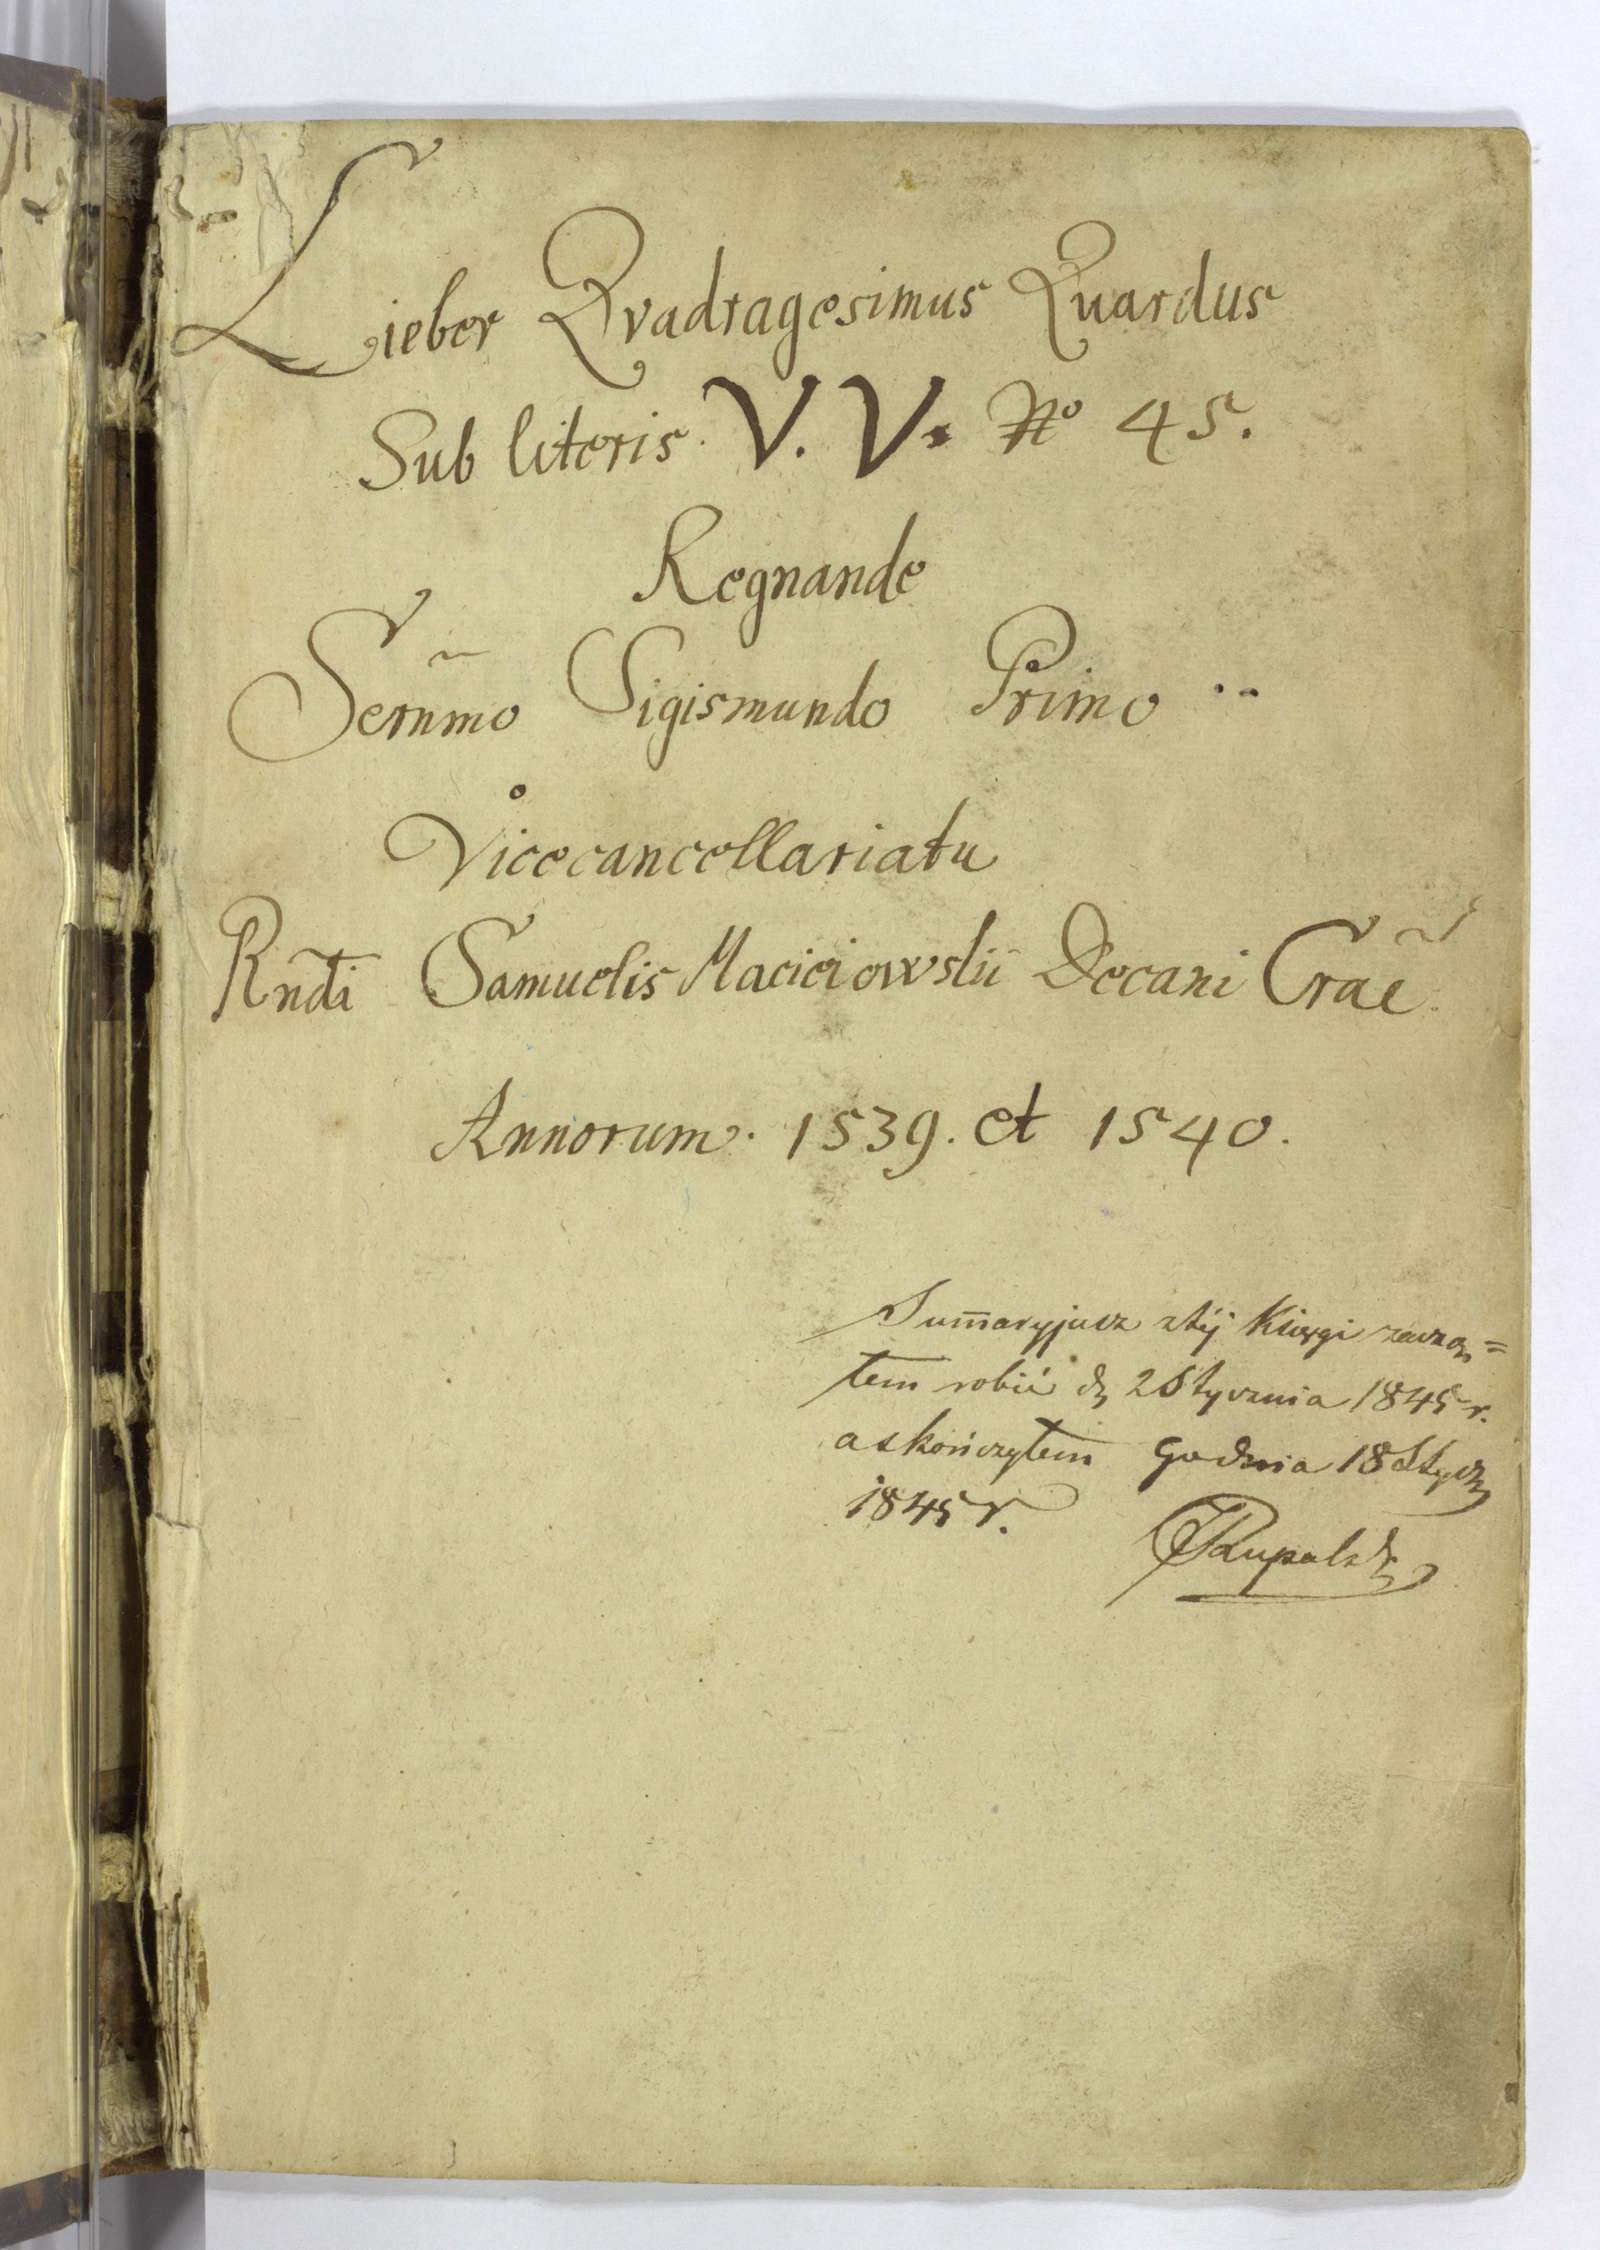 Lieber Qvadragesimus Quardus
Sub literis. V. V. No 45.
Regnande
Sernmo Sigismundo Primo
Vicecancellariatu
Rndi Samuelis Macieiowslii Decani Crac.
Annorum. 1539. et 1540.
Sum̄aryjusz z téj Księgi zaczą=
łem robić d. 2 Stycznia 1845 r.
a skończyłem go dnia 18 Stycz
1845 r.